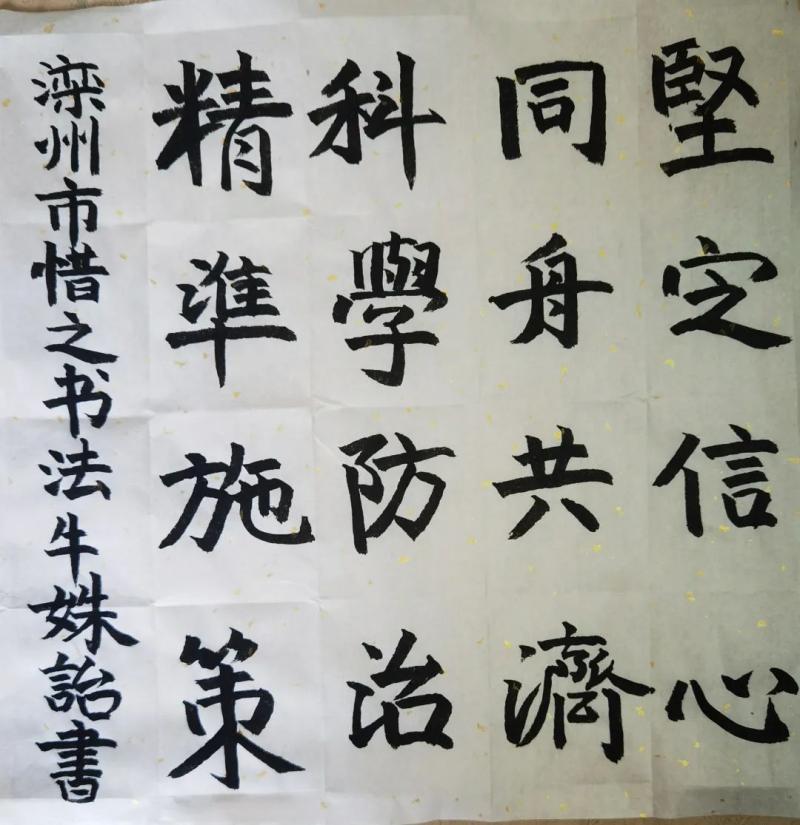 堅定信心
同舟共濟
科學防治
精準施策
滦州市惜之书法牛姝詒書